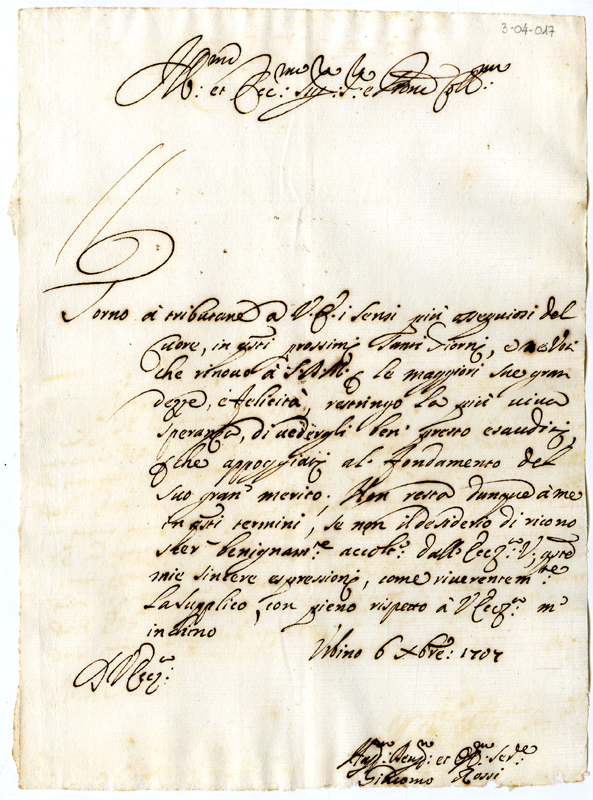 3-04-017
Ill.mo et Ecc.mo Sig.r
Torno à tributare à V.E. i sensi più osseguiosi del
Cuore, in q.sti prossimi Santi Giorni, e ne Voti
che rinovo à S.D.M. p le maggiori sue gran
dezze, e felicità, restringo la più viva
speranza, di vedergli ben presto esauditi,
p che appoggiati al fondamento del
suo gran merito. Non resta dunque à me
in q.sti termini, se non il desiderio di ricono
scer benignam.te accolte dall'Ecc.za V. queste
mie sincere espressioni, come riverentem.te
La supplico, con pieno rispetto à V. Ecc.za m'
inchino
Urbino 6 Xbre: 1707
D V Ecc.za
Giacomo Rossi